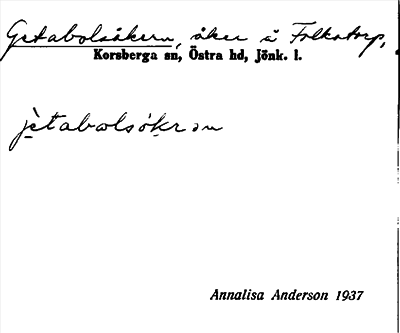 Getabolsåkern, åker å Folkatorp,
Korsberga sn, Östra hd, Jönk. l.
jètabωlsókrən
Annalisa Anderson 1937